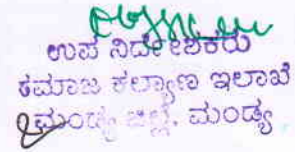 ಉಪ ನಿರ್ದೇಶಕರು
ಸಮಾಜ ಕಲ್ಯಾಣ ಇಲಾಖೆ
ಮಂಡ್ಯ ಜಿಲ್ಲೆ, ಮಂಡ್ಯ